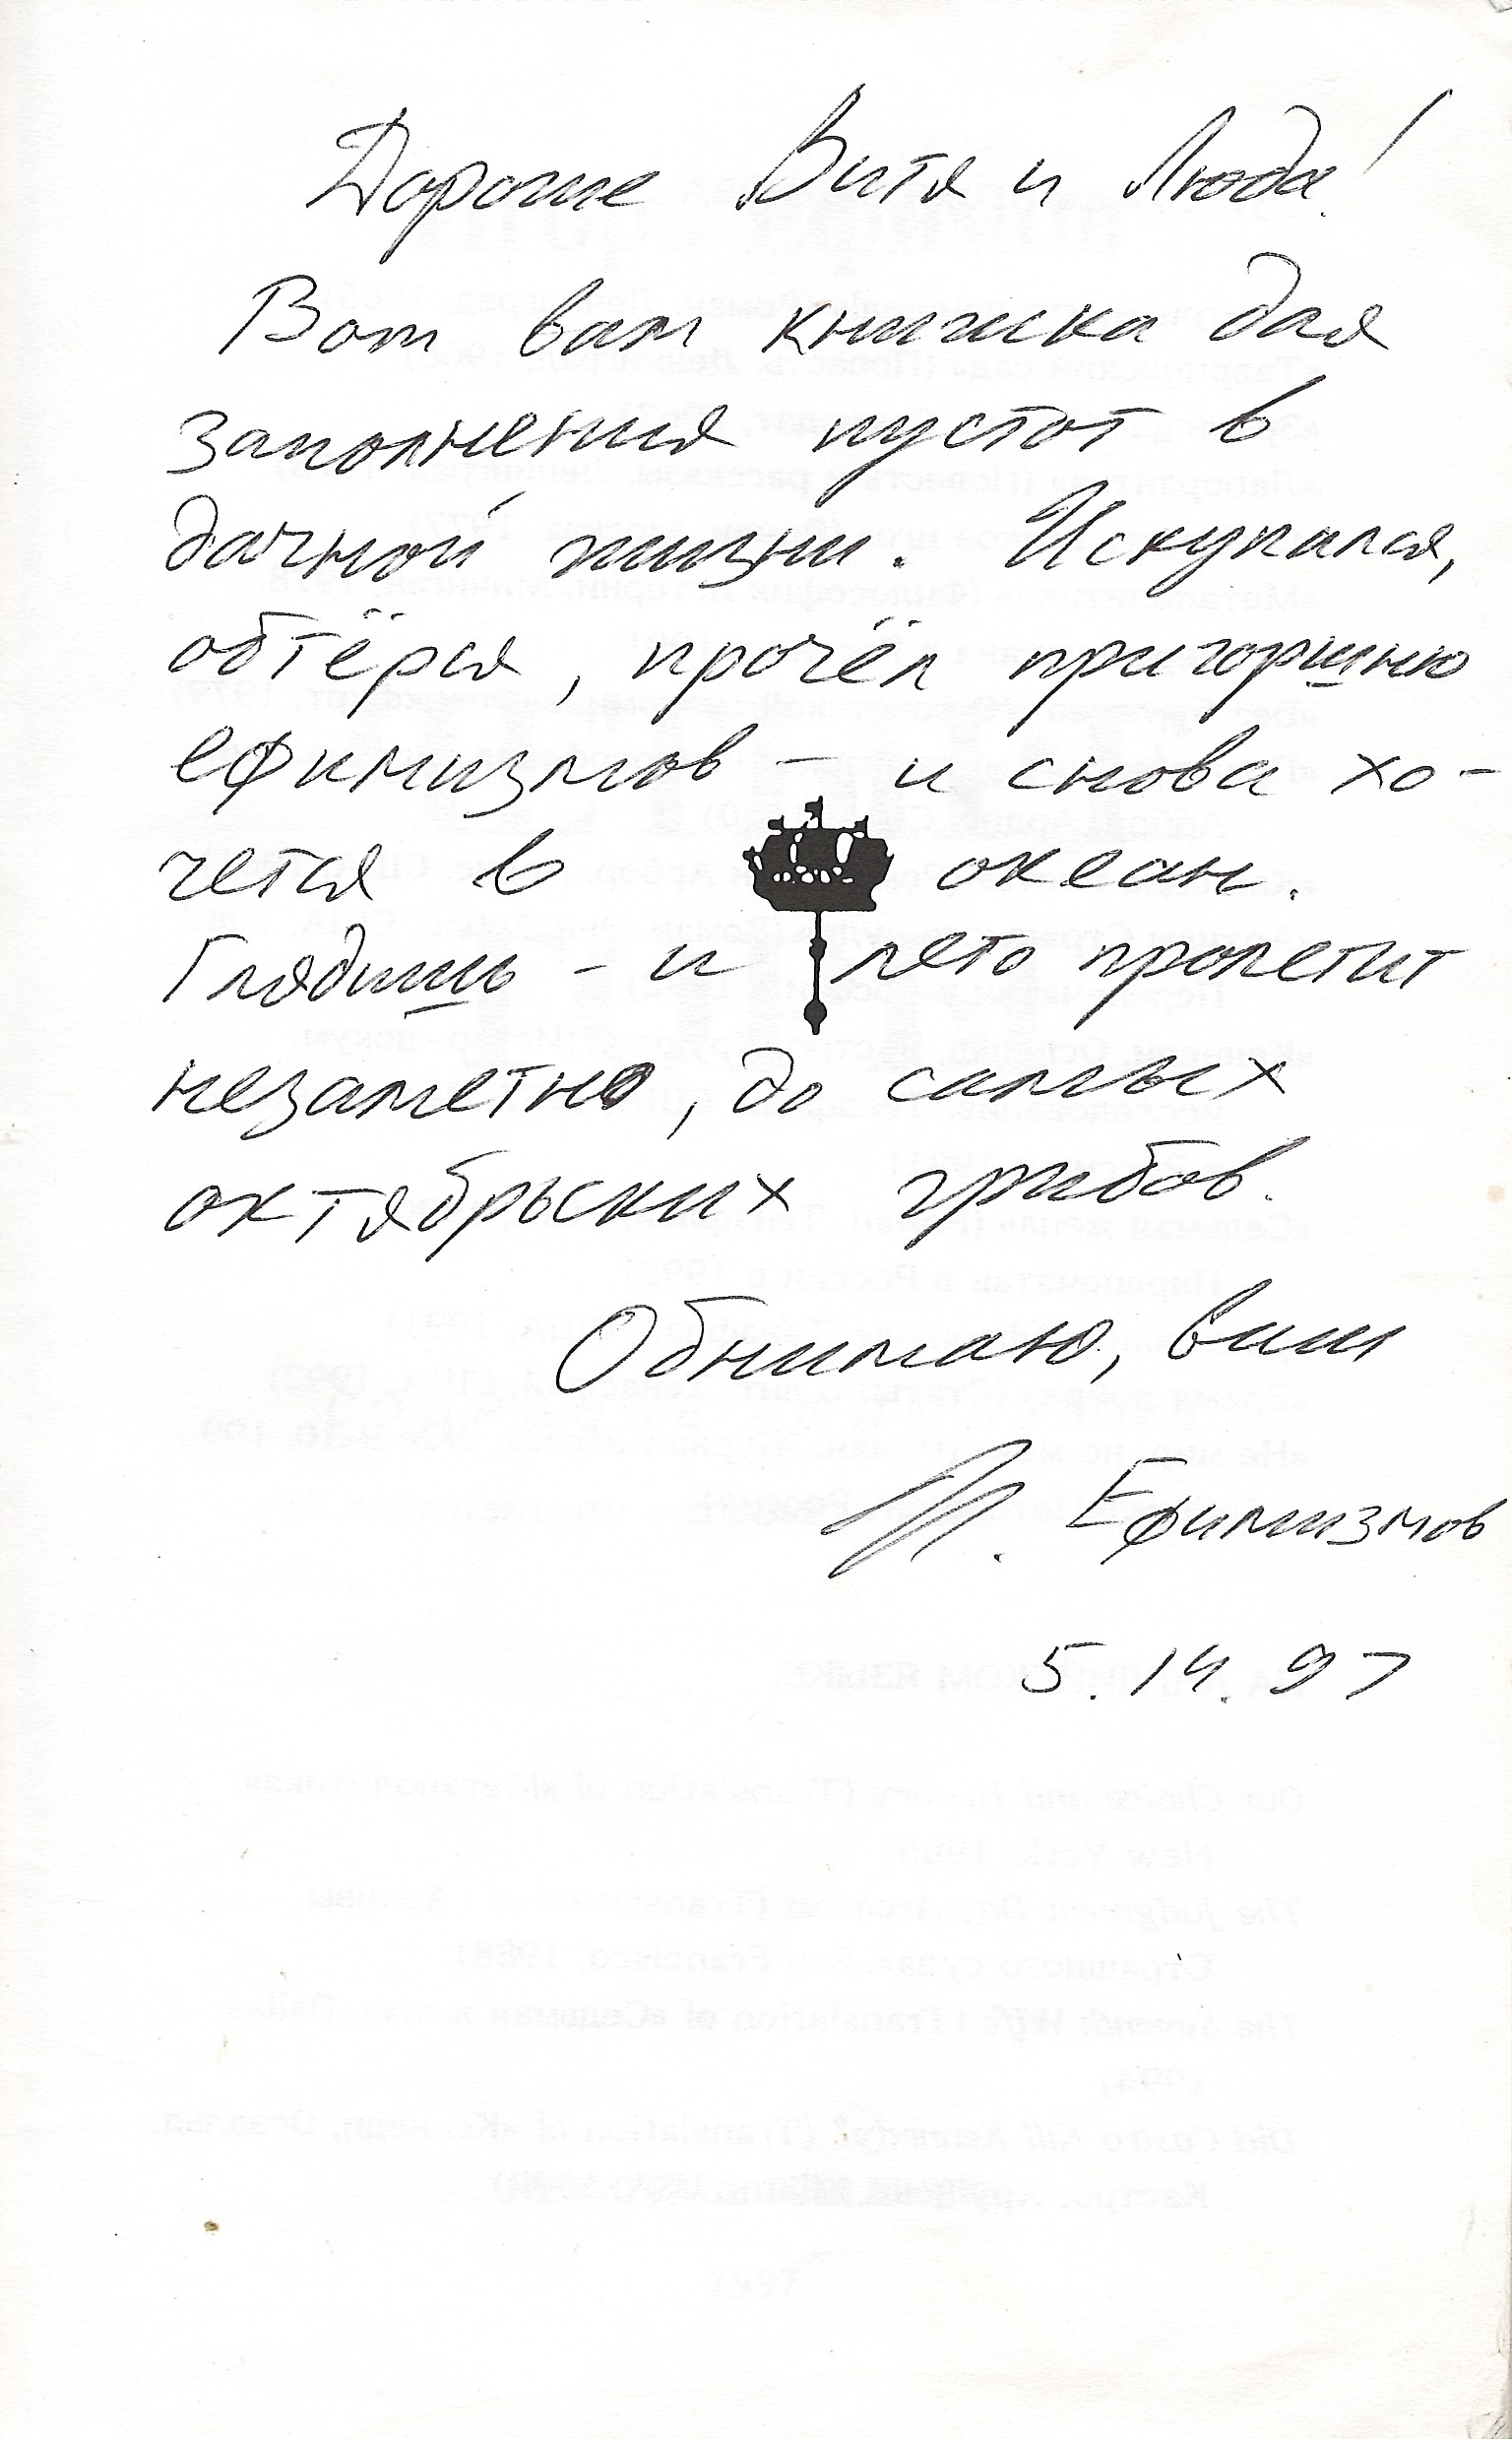 Дорогие Витя и Люда!
Вот вам книжка для
заполнения пустот в
дачной жизни. Искупался,
обтёрся, прочёл пригоршню
ефимизмов – и снова хо-
чется в океан.
Глядишь – и лето пролетит
незаметно, до самых
октябрьских грибов.
Обнимаю, ваш
И. Ефимизмов
5.14.97